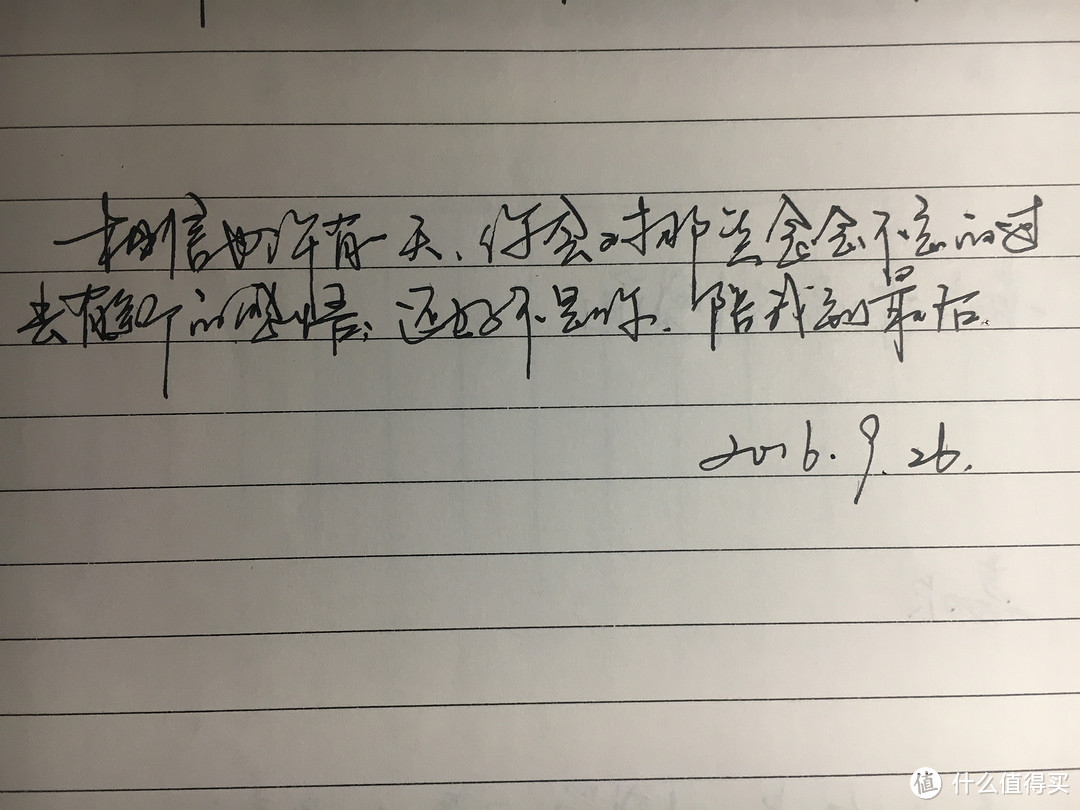 相信也许有一天、你会对那些念念不忘的过
去有新的感悟；还好不是你、陪我到最后。
2016.9.26.
值 什么值得买